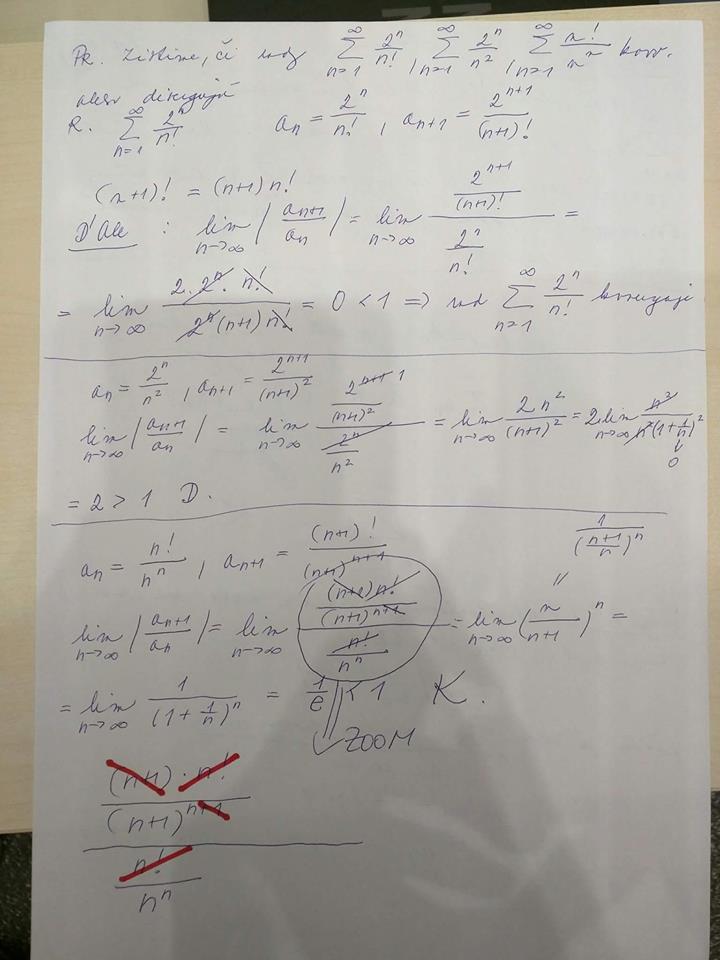 Pr. Zistime, či rady ∑_{n=1}^{∞} 2^n/n!, ∑_{n=1}^{∞} 2^n/n^2, ∑_{n=1}^{∞} n!/n^n konv.
alebo divergujú
R. ∑_{n=1}^{∞} 2^n/n! a_n = 2^n/n!, a_{n+1} = 2^{n+1}/(n+1)!
(n+1)! = (n+1) n!
D'Ale : lim_{n→∞} |a_{n+1}/a_n| = lim_{n→∞} (2^{n+1}/(n+1)!)/(2^n/n!) =
= lim_{n→∞} (2·2^n·n!)/(2^n (n+1) n!) = 0 < 1 ⇒ rad ∑_{n=1}^{∞} 2^n/n! konverguje
a_n = 2^n/n^2, a_{n+1} = 2^{n+1}/(n+1)^2
lim_{n→∞} |a_{n+1}/a_n| = lim_{n→∞} (2^{n+1} 1/(n+1)^2)/(2^n/n^2) = lim_{n→∞} 2n^2/(n+1)^2 = 2·lim_{n→∞} n^2/(n^2(1+1/n)^2)
↓
0
= 2 > 1 D.
a_n = n!/n^n, a_{n+1} = (n+1)!/(n+1)^{n+1} 1/((n+1)/n)^n
||
lim_{n→∞} |a_{n+1}/a_n| = lim_{n→∞} ((n+1)n!/(n+1)^{n+1})/(n!/n^n) = lim_{n→∞} (n/(n+1))^n =
= lim_{n→∞} 1/(1+1/n)^n = 1/e < 1 K.
ZOOM
((n+1)·n!/(n+1)^{n+1})/(n!/n^n)